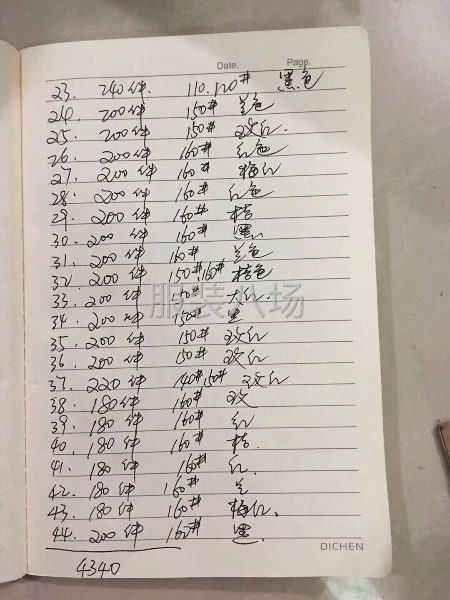 Date. Page.
23. 240件. 110.120# 黑色
24. 200件 150# 兰色
25. 200件 150# 玫红.
26. 200件 160# 红色
27. 200件 160# 梅红
28. 200件 160# 红色
29. 200件 160# 桔
30. 200件 160# 黑
31. 200件 160# 兰色
32. 200件 150#.160# 桔色
33. 200件 150# 大红.
34. 200件 150# 黑
35. 200件 150# 玫红
36. 200件 150# 玫红
37. 220件 140#.150# 玫红
38. 180件 160# 玫
39. 180件 160# 红
40. 180件 160# 桔.
41. 180件 160# 红.
42. 180件 160# 兰
43. 180件 160# 梅红.
44. 200件 160# 黑.
4340
DICHEN
服装八场